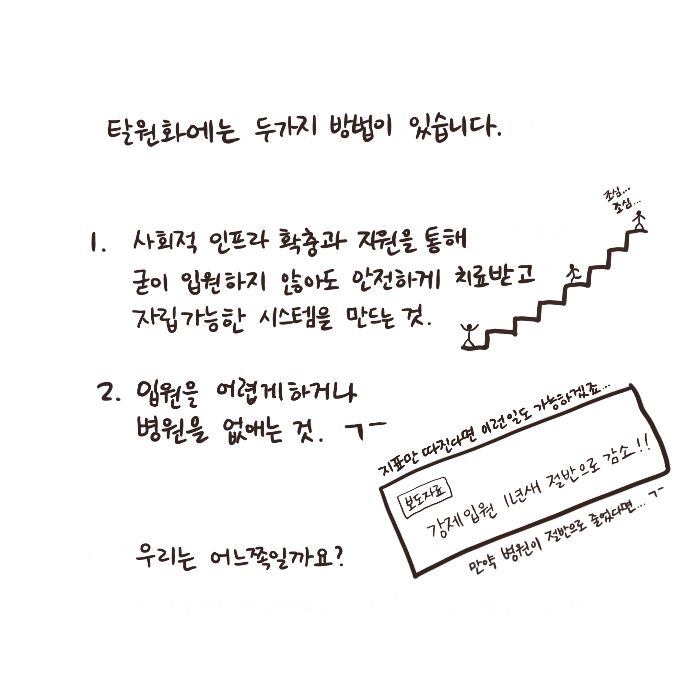 탈원화에는 두가지 방법이 있습니다.
조심...
조심...
1. 사회적 인프라 확충과 지원을 통해
굳이 입원하지 않아도 안전하게 치료받고
자립가능한 시스템을 만드는 것.
2. 입원을 어렵게하거나
병원을 없애는 것. ㄱ-
지표만 따진다면 이런일도 가능하겠죠...
보도자료
강제입원 1년새 절반으로 감소!!
만약 병원이 절반으로 줄었다면... ㄱ-
우리는 어느쪽일까요?